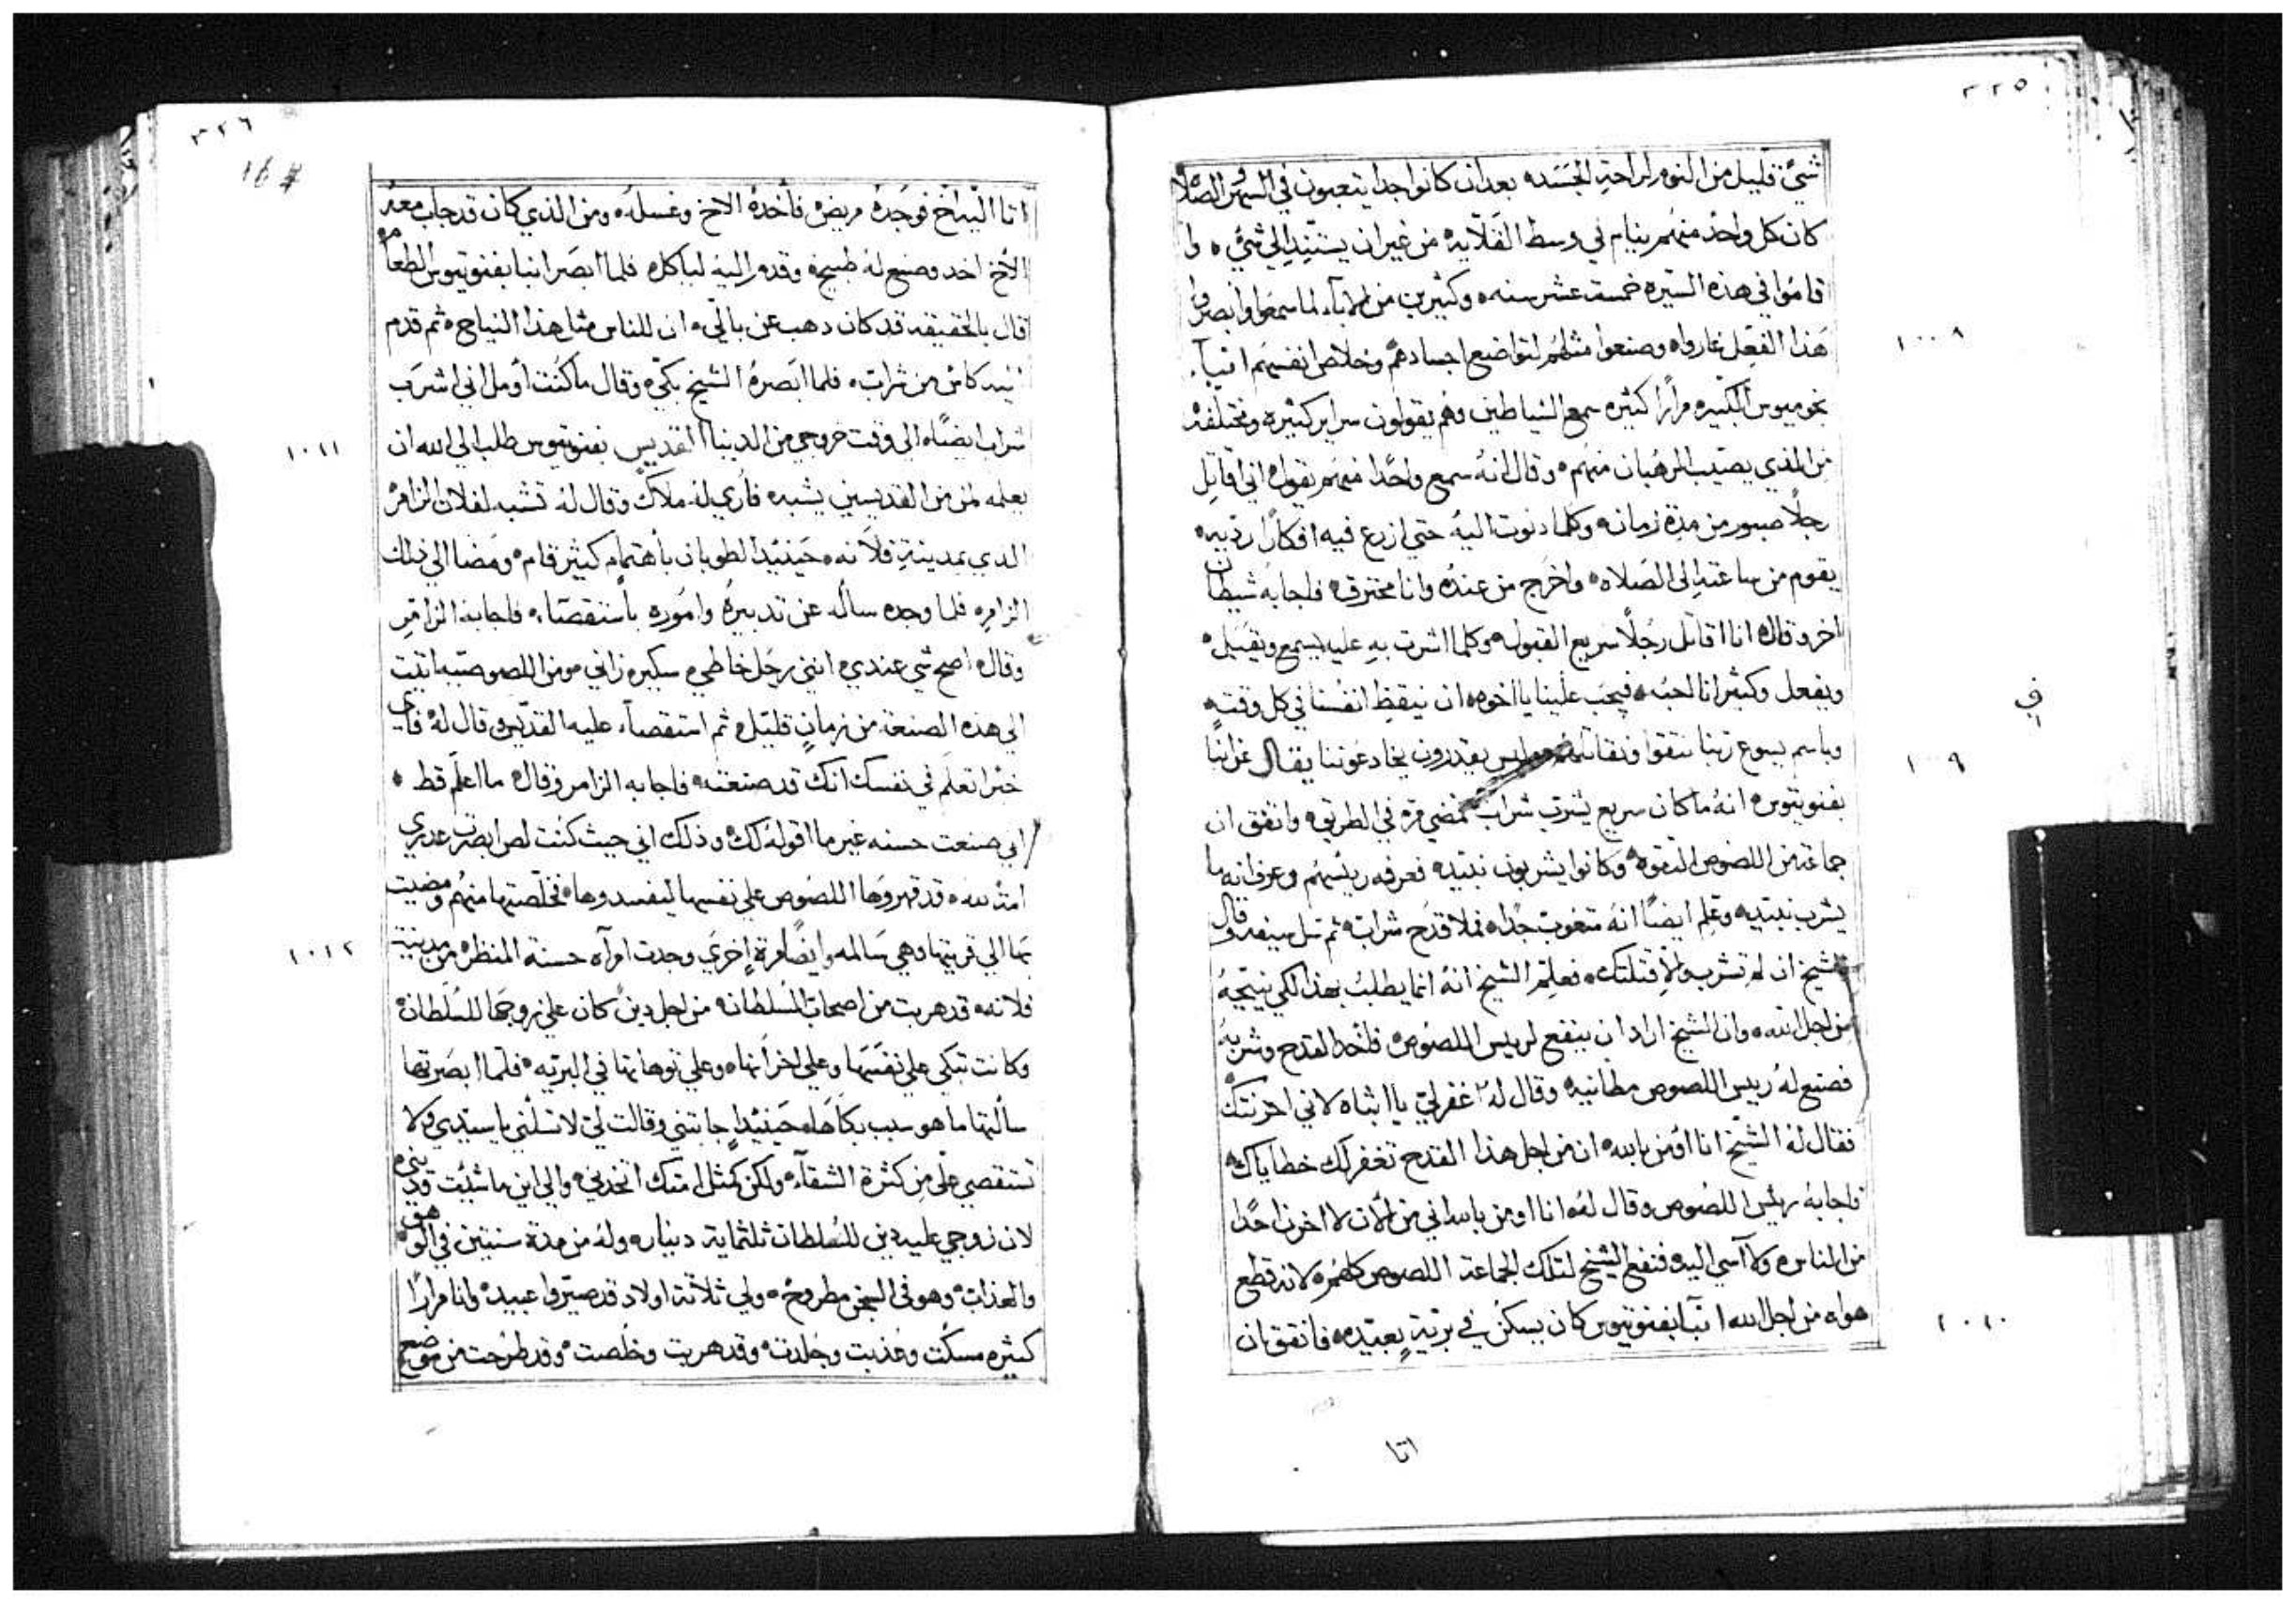 ٣٢٥
شيء قليل من النوم لراحة الجسد بعد ان كانوا جدا يتعبون في السهر والصلاة
كان كل واحد منهم ينام في وسط القلايه من غير ان يستند الي شيء وا
قاموا في هذه السيره خمسة عشر سنه وكثيرين من الاباء لما سمعوا وابصروا
هذا الفعل غاروا وصنعوا مثلهم لتواضع اجسادهم وخلاص انفسهم انبا
١٠٠٨
بخوميوس الكبير مرارًا كثيره سمع الشياطين وهم يقولون سراير كثيره ومختلفه
من الذي يصيب الرهبان منهم وقال انه سمع واحدًا منهم يقول اني اقاتل
رجلًا صبور من مدة زمان وكلما دنوت اليه حتي ازرع فيه افكارًا رديه
يقوم من ساعته الى الصلاه واخرج من عنده وانا محترق فاجابه شيطان
اخر وقال انا اقاتل رجلًا سريع القبول وكلما اشرت به عليه يسمع ويقبل
ويفعل وكثير انا احبه فيجب علينا يا اخوه ان نيقظ انفسنا في كل وقت
وباسم يسوع ربنا نتقوا ونقاتلهم وليس يقدرون يخادعوننا يقال عن انبا
١٠٠٩
في
بفنوتيوس انه ما كان سريع يشرب شراب فمضي مره في الطريق واتفق ان
جماعة من اللصوص التقوه وكانوا يشربون نبيد فعرفه رييسهم وعرف انه ما
يشرب نبيد وعلم ايضًا انه متعوب جدًا فملا قدح شراب ثم سل سيفه وقال
للشيخ ان لم تشرب والا قتلتك فعلم الشيخ انه انما يطلب بهذا لكي نيحه
من اجل الله وان الشيخ اراد ان ينفع لرييس اللصوص فاخد القدح وشربه
فصنع له رييس اللصوص مطانيه وقال له اغفر لي يا ابتاه لاني احزنتك
فقال له الشيخ انا اؤمن بالله ان من اجل هذا القدح تغفر لك خطاياك
فاجابه رييس اللصوص وقال له وانا اومن بالله اني من الان لا احزن احدًا
من الناس ولا آسي اليه فنفع الشيخ لتلك الجماعة اللصوص كلهم لانه قطع
هواه من اجل الله انبا بفنوتيوس كان يسكن في برية بعيده فاتفق ان
١٠١٠
اتا
٣٢٦
اتا اليه اخ فوجده مريض فاخده الاخ وغسله ومن الذي كان قد جاب معه
الاخ اخد وصنع له طبيخ وقدم اليه لياكل فلما ابصر انبا بفنوتيوس الطعام
قال بالحقيقه قد كان دهب عن بالي ان للناس مثل هذا النياح ثم قدم
اليه كاس من شراب فلما ابصره الشيخ بكي وقال ما كنت اومل اني اشرب
شراب ايضًا الى وقت خروجي من الدنيا القديس بفنوتيوس طلب الي الله ان
١٠١١
يعلمه لمن من القديسين يشبه فاري له ملاك وقال له تشبه لفلان الزامر
الدي بمدينة فلانه حينيد الطوبان باهتمام كثير قام ومضا الي ذلك
الزامر فلما وجده ساله عن تدبيره واموره باستقصاء فاجابه الزامر
وقال اصح شي عندي انني رجل خاطي سكير زاني ومن اللصوصيه اتيت
الي هذه الصنعه من زمان قليل ثم استقصاء عليه القديس وقال له فاي
خيرًا تعلم في نفسك انك قد صنعته فاجابه الزامر وقال ما اعلم قط
اني صنعت حسنه غير ما اقوله لك وذلك اني حيث كنت لص ابصرت عدري
امة لله قد قهروها اللصوص علي نفسها ليفسدوها فخلصتها منهم ومضيت
بها الي قريتها وهي سالمه وايضًا مرة اخري وجدت امرآه حسنة المنظر من مدينة
١٠١٢
فلانه قد هربت من اصحاب السلطان من اجل دين كان علي زوجها للسلطان
وكانت تبكي علي نفسها وعلي احزانها وعلي توهانها في البريه فلما ابصرتها
سالتها ما هو سبب بكاها حينيد اجابتني وقالت لي لا تسلني يا سيدي ولا
تستقصي علي من كثرة الشقاء ولكن كمثل امتك اتخدني والي اين ما شيت وديني
لان زوجي عليه دين للسلطان ثلثماية دينار وله من مدة سنتين في الوهق
والعذاب وهو في السجن مطروح ولي ثلاثة اولاد قد صيروا عبيد وانا مرارًا
كثيره مسكت وعذبت وجلدت وقد هربت وخلصت وقد طرحت من موضع